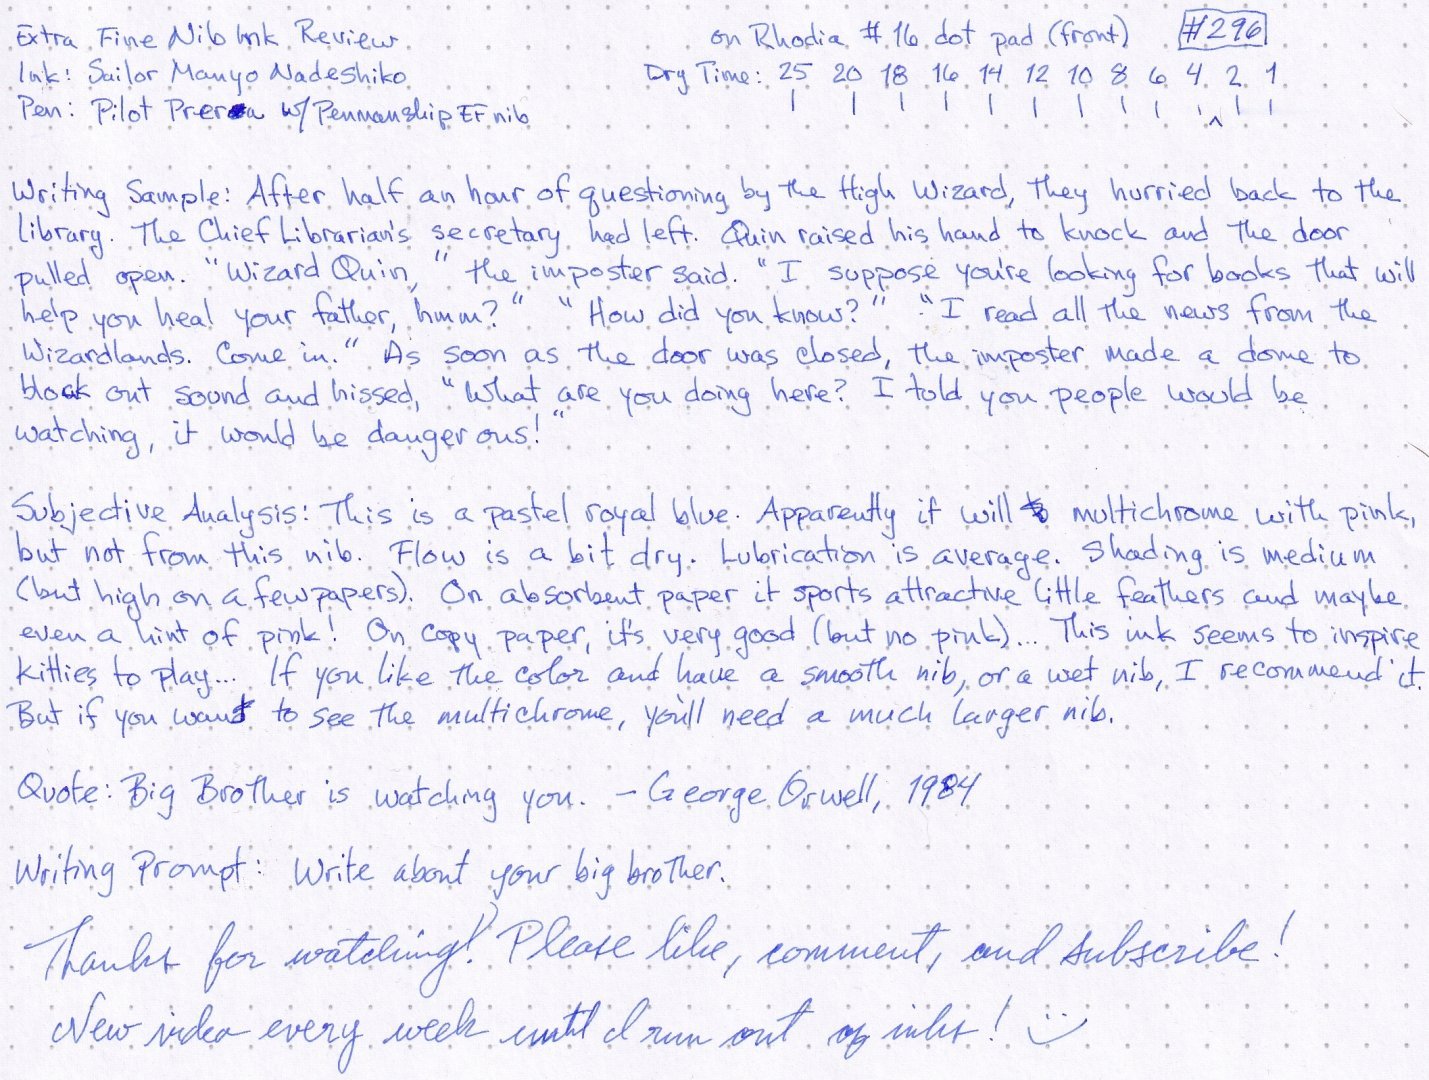 Extra Fine Nib Ink Review on Rhodia #16 dot pad (front) #296
Ink: Sailor Manyo Nadeshiko Dry Time: 25 20 18 16 14 12 10 8 6 4 2 1
Pen: Pilot Prera w/ Penmanship EF nib
Writing Sample: After half an hour of questioning by the High Wizard, they hurried back to the
library. The Chief Librarian's secretary had left. Quin raised his hand to knock and the door
pulled open. "Wizard Quin," the imposter said. "I suppose you're looking for books that will
help you heal your father, hmm?" "How did you know?" "I read all the news from the
Wizardlands. Come in." As soon as the door was closed, the imposter made a dome to
block out sound and hissed, "What are you doing here? I told you people would be
watching, it would be dangerous!"
Subjective Analysis: This is a pastel royal blue. Apparently it will multichrome with pink,
but not from this nib. Flow is a bit dry. Lubrication is average. Shading is medium
(but high on a few papers). On absorbent paper it sports attractive little feathers and maybe
even a hint of pink! On copy paper, it's very good (but no pink)... This ink seems to inspire
kitties to play... If you like the color and have a smooth nib, or a wet nib, I recommend it.
But if you want to see the multichrome, you'll need a much larger nib.
Quote: Big Brother is watching you. - George Orwell, 1984
Writing Prompt: Write about your big brother.
Thanks for watching! Please like, comment, and subscribe!
New video every week until I run out of inks!